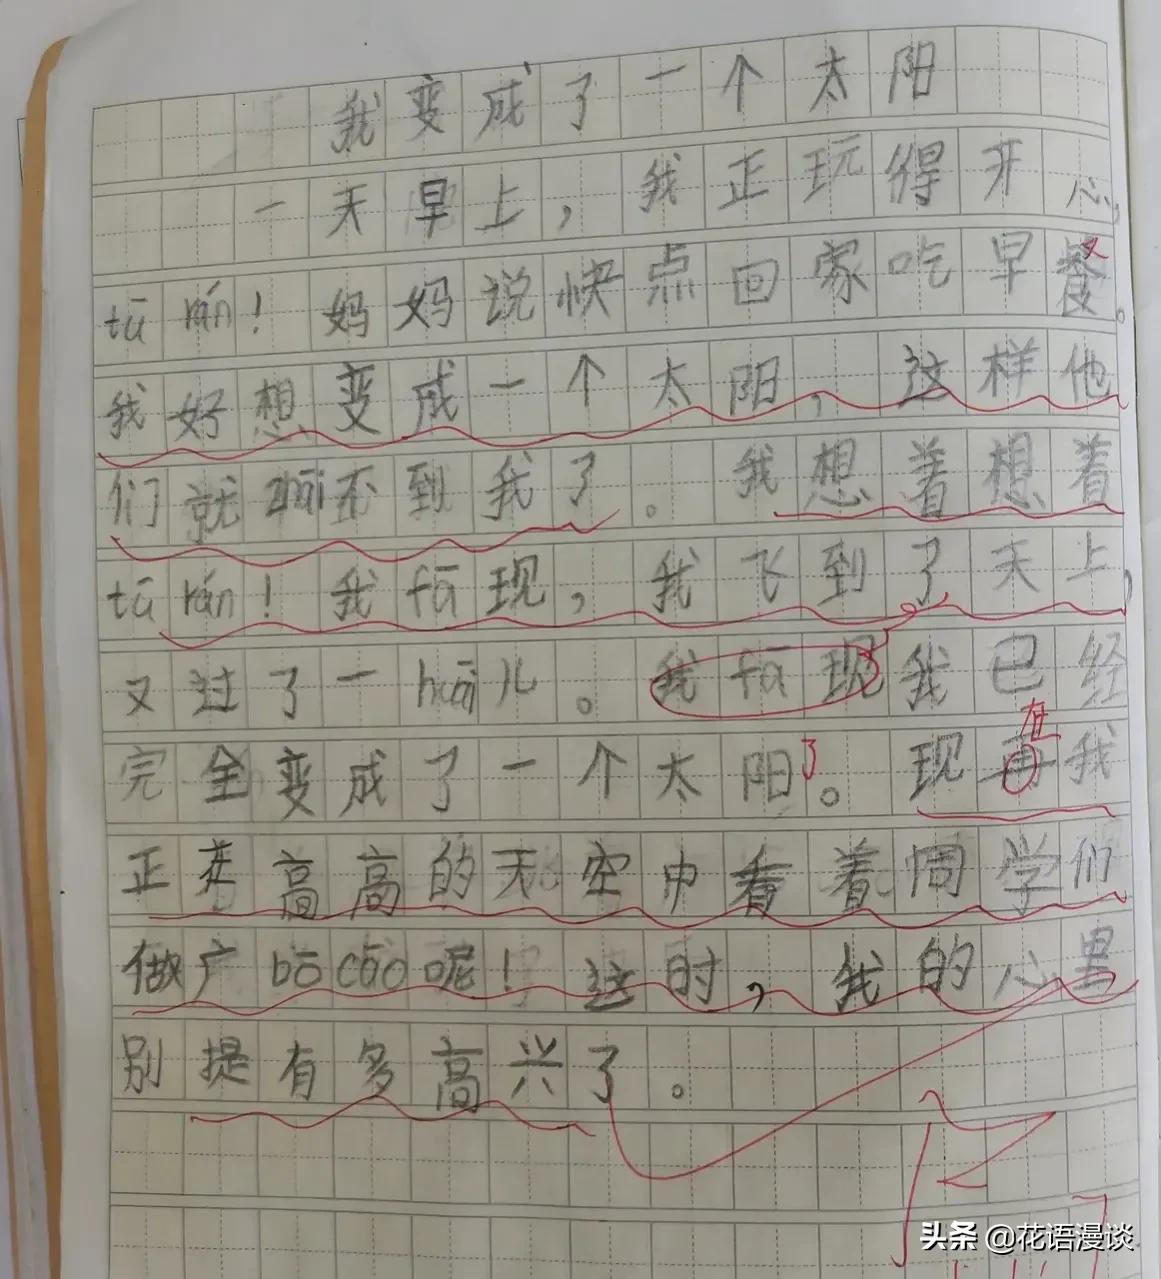 我变成了一个太阳
一天早上，我正玩得开心，
tū rán！妈妈说快点回家吃早餐。
我好想变成一个太阳，这样他
们就zhǎi不到我了。我想着想着
tū rán！我fā现，我飞到了天上，
又过了一huǐ儿。我fā现我已经
完全变成了一个太阳了。现再我
在
正在高高的天空中看着同学们
做广bō cāo呢！这时，我的心里
别提有多高兴了。
头条 @花语漫谈